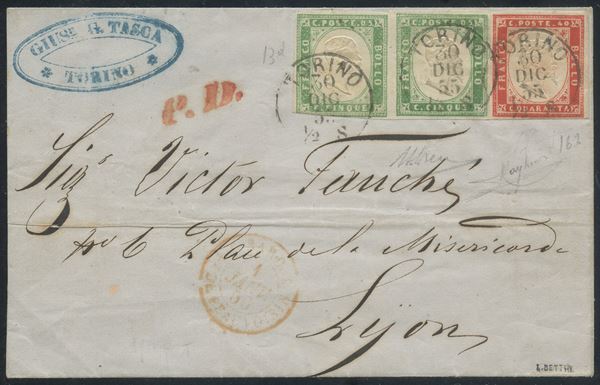 GIUSE. G. TASCA
TORINO
P. D.
C. POSTE. 05
FRANCO
BOLLO
C. CINQUE
C. POSTE. 05
FRANCO
BOLLO
C. CINQUE
C. POSTE. 40
FRANCO
BOLLO
C. QUARANTA
TORINO
30
DIC
½ S
TORINO
30
DIC
55
TORINO
30
DIC
55
162
Sigr Victor Fauché
no 6 Place de la Misericorde
Lyon
1